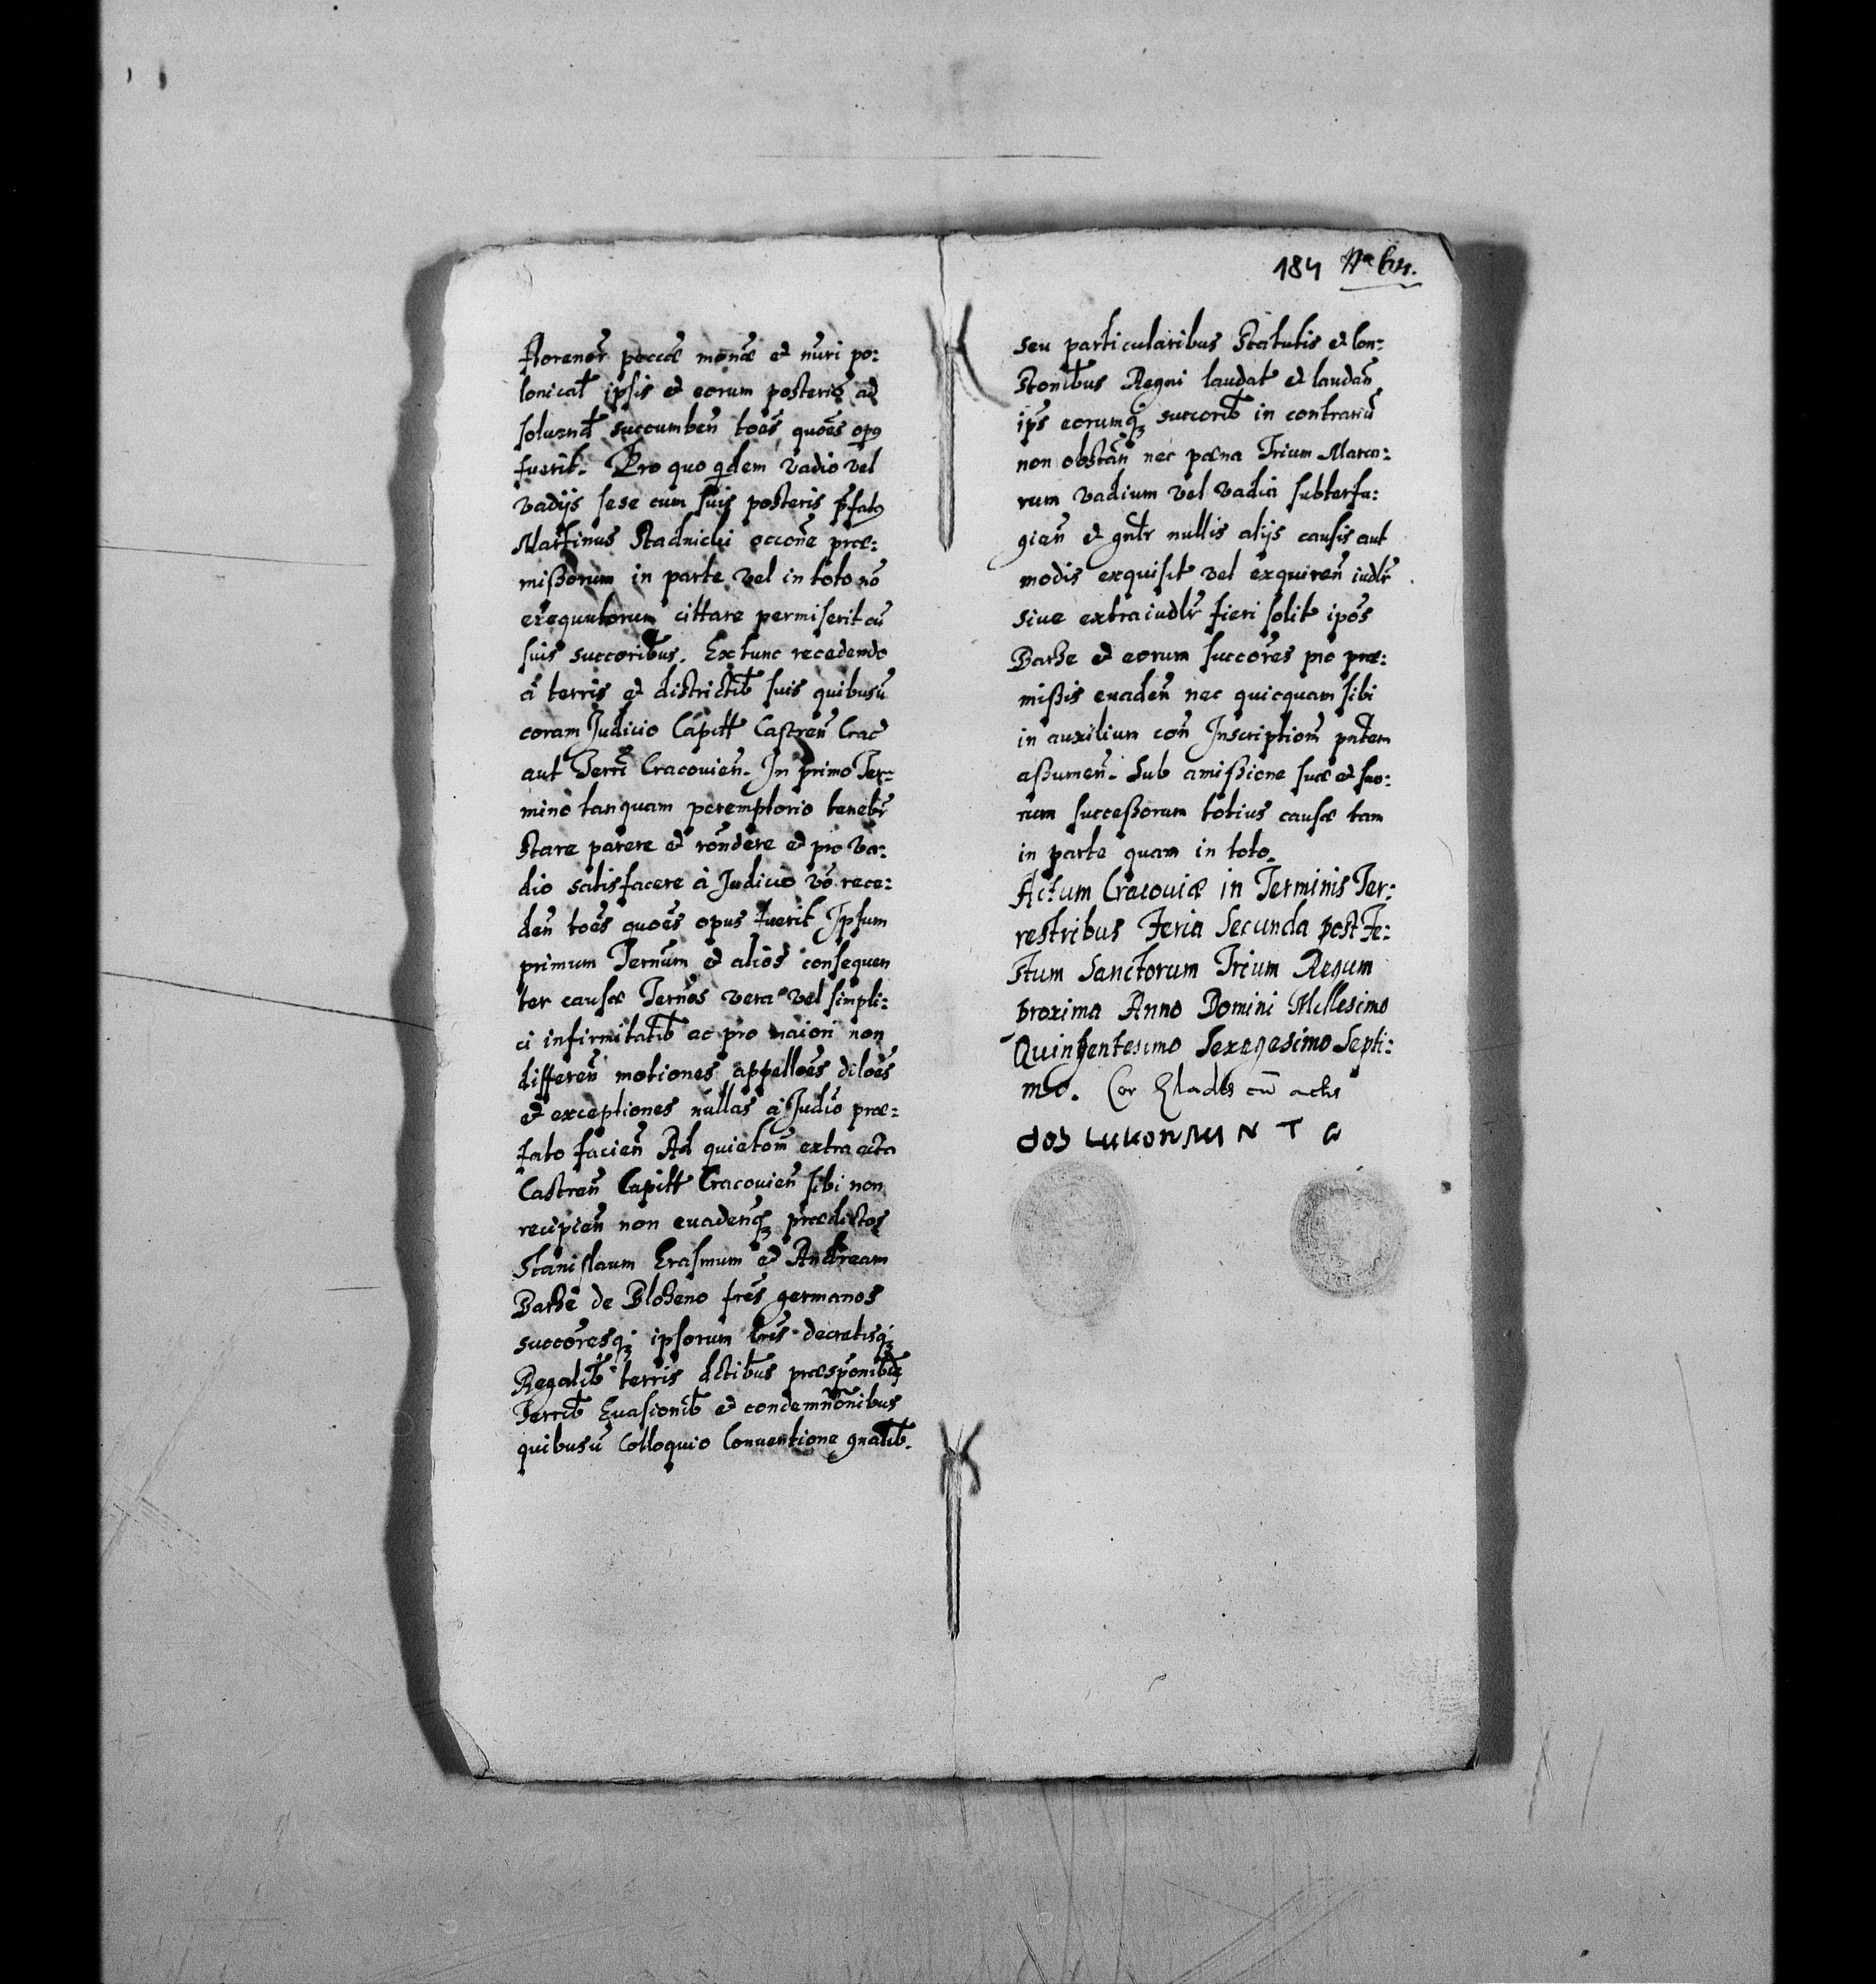 florenor̃ peccae monae et nũri po:
lonicał ipsis et eorum posteris ad
soluend succumbeñ toẽs quoẽs opꝰ
fuerit. Pro quo qdem vadio vel
vadijs sese cum suis posteris p̃fatꝰ
Martinus Stadnicki occoñe prae:
mißorum in parte vel in toto nõ
exequutorum cittare permiserit cũ
suis succoribus. Ex tunc recedendo
à terris et districtib suis quibusũ
coram Judicio Capitł Castreñ Crac̃
aut Terrĩ Cracovieñ. In primo Ter:
mino tanquam peremptorio tenebr̃
Stare parere et rõndere et pro va:
dio satisfacere à Judicio nõ rece:
deñ toẽs quoẽs opus fuerit Ipsum
primum Terñum et alios consequen
ter causae Terños vera vel simpli:
ci infirmitatib ac pro maiori non
differeñ motiones appelloẽs diloẽs
et exceptiones nullas à Judio prae:
fato facieñ Ad quietoñ extra acta
Castreñ Capitł Cracovieñ sibi non
recipieñ non evadenq̃ praedictos
Stanislaum Erasmum et Andream
Barhe de Bloheno frẽs germanos
succoresq̃ ipsorum lrĩs decretisq̃
Regalib terris dctibus praesponibq̃
Terrib Evasionib et condemñonibus
quibusũ Colloquio Conventione gnalib.
184
seu particularibus Statutis et Con:
stonibus Regni laudat et laudañ
ip̃s eorumq̃ succorib in contrariũ
non obstañ nec paena Trium Marca:
rum vadium vel vadia subterfu:
gieñ et gnłr nullis alijs causis aut
modis exquisit vel exquireñ iudlr̃
sive extraiudlr̃ fieri solit ipõs
Barhe et eorum succoŕes pro prae:
mißis evadeñ nec quicquam sibi
in auxilium coñ Inscriptioñ pñtem
aßumeñ. Sub amißione suae et suo:
rum succeßorum totius causae tam
in parte quam in toto.
Actum Cracoviae in Terminis Ter:
restribus Feria Secunda post Fe:
stum Sanctorum Trium Regum
proxima Anno Domini Millesimo
Quingentesimo Sexagesimo Septi:
mo. Cor cũ actis